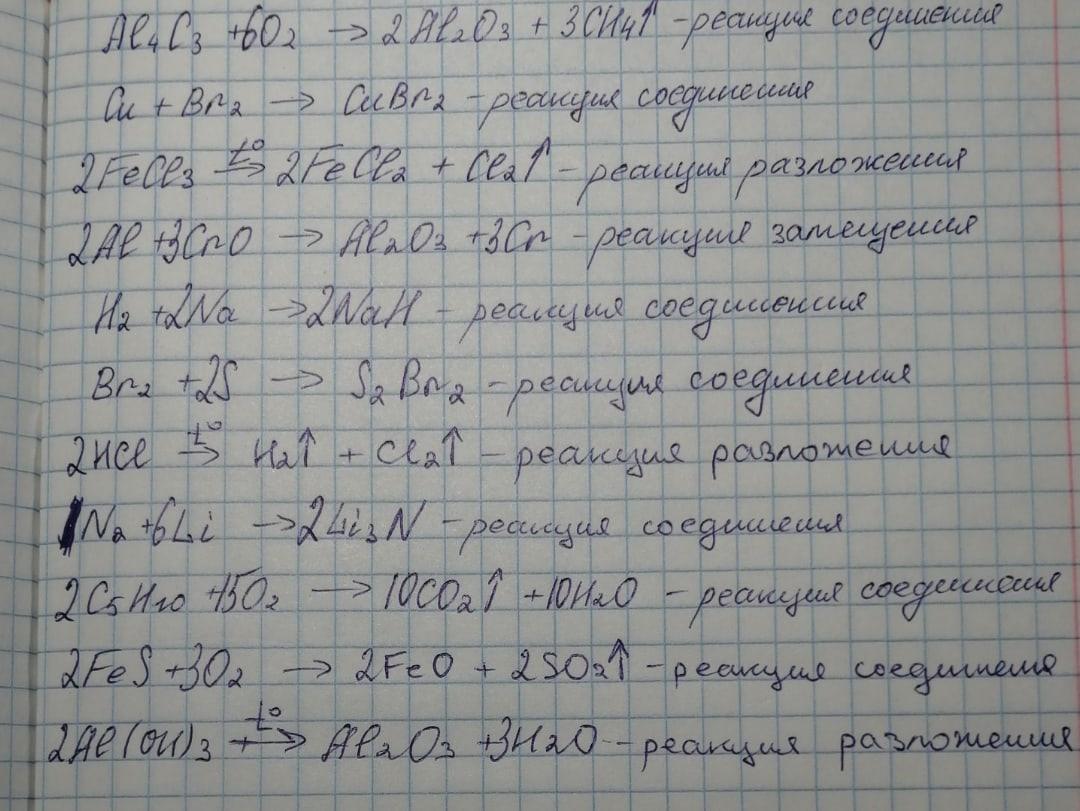 Al₄C₃ + 6O₂ → 2Al₂O₃ + 3CH₄↑ - реакция соединения
Cu + Br₂ → CuBr₂ - реакция соединения
2FeCl₃ t°→ 2FeCl₂ + Cl₂↑ - реакция разложения
2Al + 3CrO → Al₂O₃ + 3Cr - реакция замещения
H₂ + 2Na → 2NaH - реакция соединения
Br₂ + 2S → S₂Br₂ - реакция соединения
2HCl t°→ H₂↑ + Cl₂↑ - реакция разложения
N₂ + 6Li → 2Li₃N - реакция соединения
2C₅H₁₀ + 15O₂ → 10CO₂↑ + 10H₂O - реакция соединения
2FeS + 3O₂ → 2FeO + 2SO₂↑ - реакция соединения
2Al(OH)₃ t°→ Al₂O₃ + 3H₂O - реакция разложения